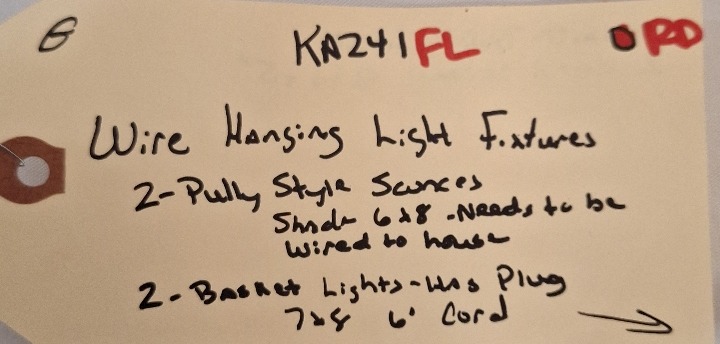 6 KA241FL RD
Wire Hanging Light Fixtures
2-Pully Style Sconces
Shade 6x8 - Needs to be
wired to house
2-Basket Lights-Has Plug
7x8 6' Cord